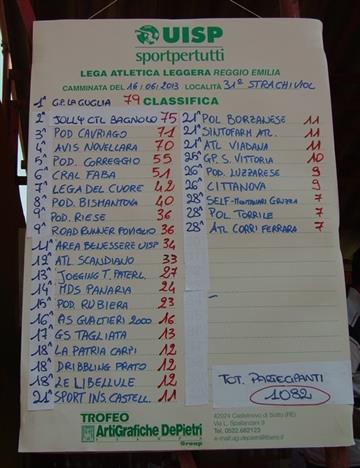 UISP
sportpertutti
LEGA ATLETICA LEGGERA REGGIO EMILIA
CAMMINATA DEL 16/06/2013 LOCALITÀ 31ª STRACHIVIOL
CLASSIFICA
1ª G.P. LA GUGLIA 79
2ª JOLLY CTL BAGNOLO 75
3ª POD. CAVRIAGO 71
4ª AVIS NOVELLARA 70
5ª POD. CORREGGIO 55
6ª CRAL FABA 51
7ª LEGA DEL CUORE 42
8ª POD. BISMANTOVA 40
9ª POD. RIESE 36
9ª ROAD RUNNER POVIGLIO 36
11ª AREA BENESSERE UISP 34
12ª ATL SCANDIANO 33
13ª JOGGING T. PATERL. 27
14ª MDS PANARIA 24
15ª POD. RUBIERA 23
16ª AS GUALTIERI 2000 16
17ª GS TAGLIATA 13
18ª LA PATRIA CARPI 12
18ª DRIBBLING PRATO 12
18ª LE LIBELLULE 12
21ª SPORT INS. CASTELL. 11
21ª POL BORZANESE 11
21ª SINTOFARM ATL. 11
21ª ATL VIADANA 11
25ª GP. S. VITTORIA 10
26ª POD. LUZZARESE 9
26ª CITTANOVA 9
28ª SELF-MONTANARI GRUZZA 7
28ª POL TORRILE 7
28ª ATL CORRI FERRARA 7
TOT. PARTECIPANTI
1082
TROFEO
ArtiGraficheDePietri
Group
42024 Castelnovo di Sotto (RE)
Via L. Spallanzani 9
Tel. 0522.682123